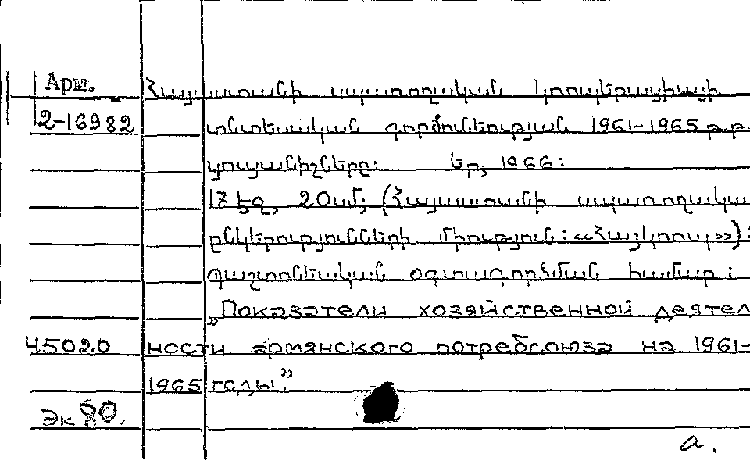 Арм. Հայաստանի սպառողական կոոպերացիայի
2-16982 տնտեսական գործունեության 1961-1965 թ.թ.
ցուցանիշները։ Եր, 1966։
17 էջ, 20սմ; (Հայաստանի սպառողակա
ընկերությունների միություն։ «Հայկոոպ»)։
Պաշտոնեական օգտագործման համար։
„Показатели хозяйственной деятел
45020 ности армянского потребсоюза на 1961-
1965 годы."
Эк 80.
а.